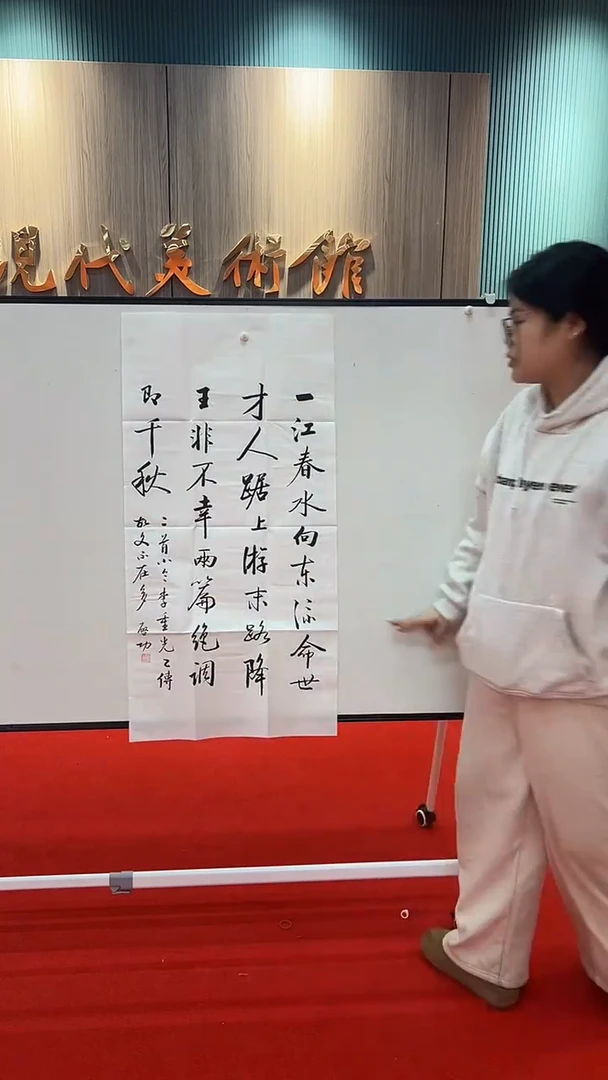 現代美術館
一江春水向东流命世
才人踞上游末路降
王非不幸兩篇絶調
即千秋
二首小令李重光以傳
故文不在多 啓功